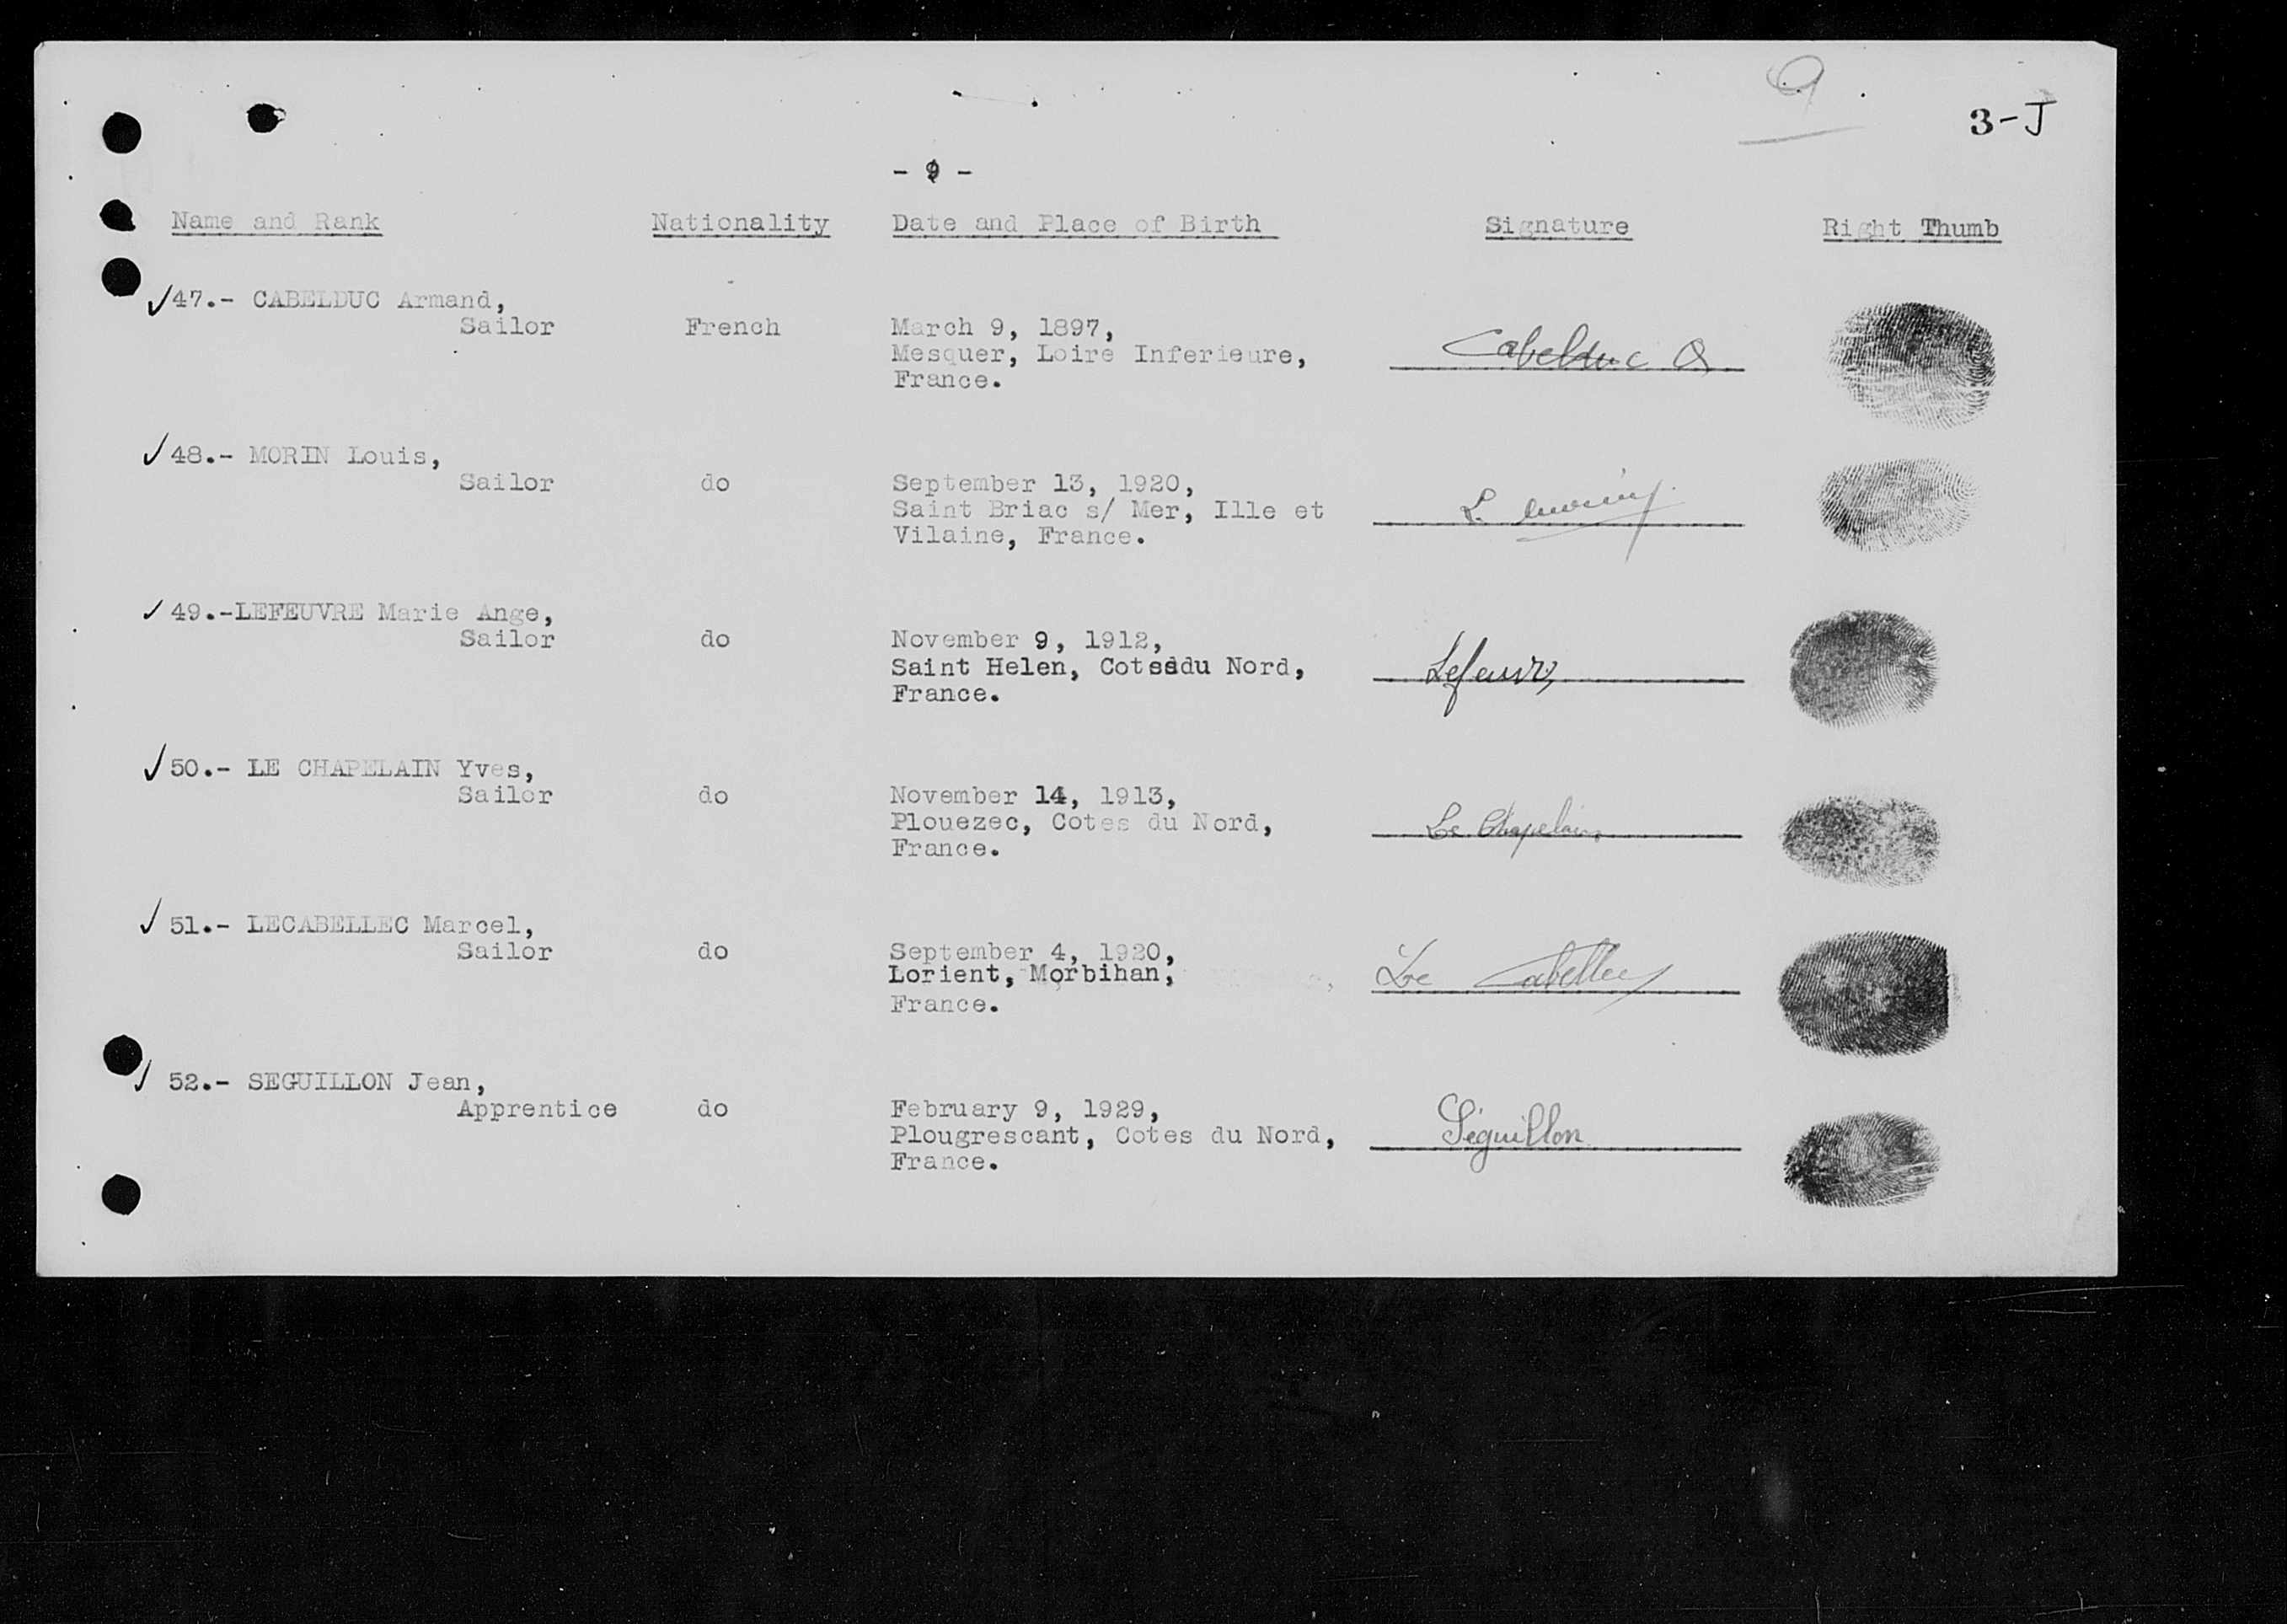 9
3-J
- 9 -
Name and Rank Nationality Date and Place of Birth Signature Right Thumb
✓47.- CABELDUC Armand,
Sailor French March 9, 1897,
Mesquer, Loire Inferieure, Cabelduc A
France.
✓48.- MORIN Louis,
Sailor do September 13, 1920,
Saint Briac s/ Mer, Ille et L. Morin
Vilaine, France.
✓49.-LEFEUVRE Marie Ange,
Sailor do November 9, 1912,
Saint Helen, Cotesdu Nord, Lefeuvre
France.
✓50.- LE CHAPELAIN Yves,
Sailor do November 14, 1913,
Plouezec, Cotes du Nord, Le Chapelain
France.
✓51.- LECABELLEC Marcel,
Sailor do September 4, 1920,
Lorient, Morbihan, Le Cabellec
France.
✓52.- SEGUILLON Jean,
Apprentice do February 9, 1929,
Plougrescant, Cotes du Nord, Séguillon
France.